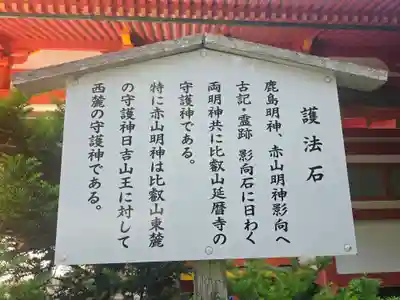 護法石
鹿島明神、赤山明神影向へ
古記・霊跡 影向石に日わく
両明神共に比叡山延暦寺の
守護神である。
特に赤山明神は比叡山東麓
の守護神日吉山王に対して
西麓の守護神である。